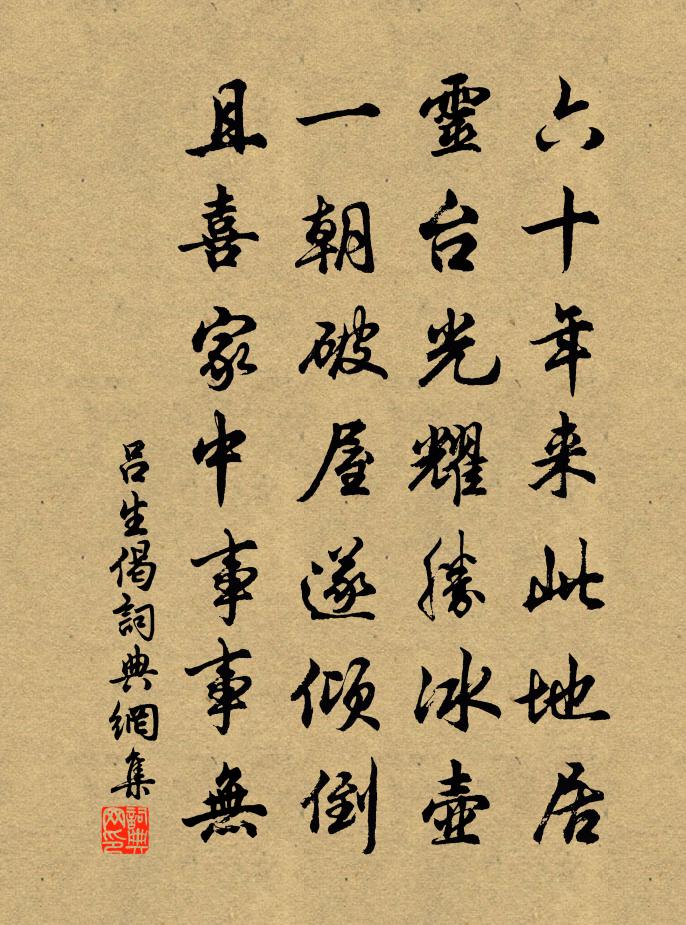 六十年来此地居
靈台光耀勝冰壺
一朝破屋遂倾倒
且喜家中事事無
吕生偈詞典網集
詞典网印